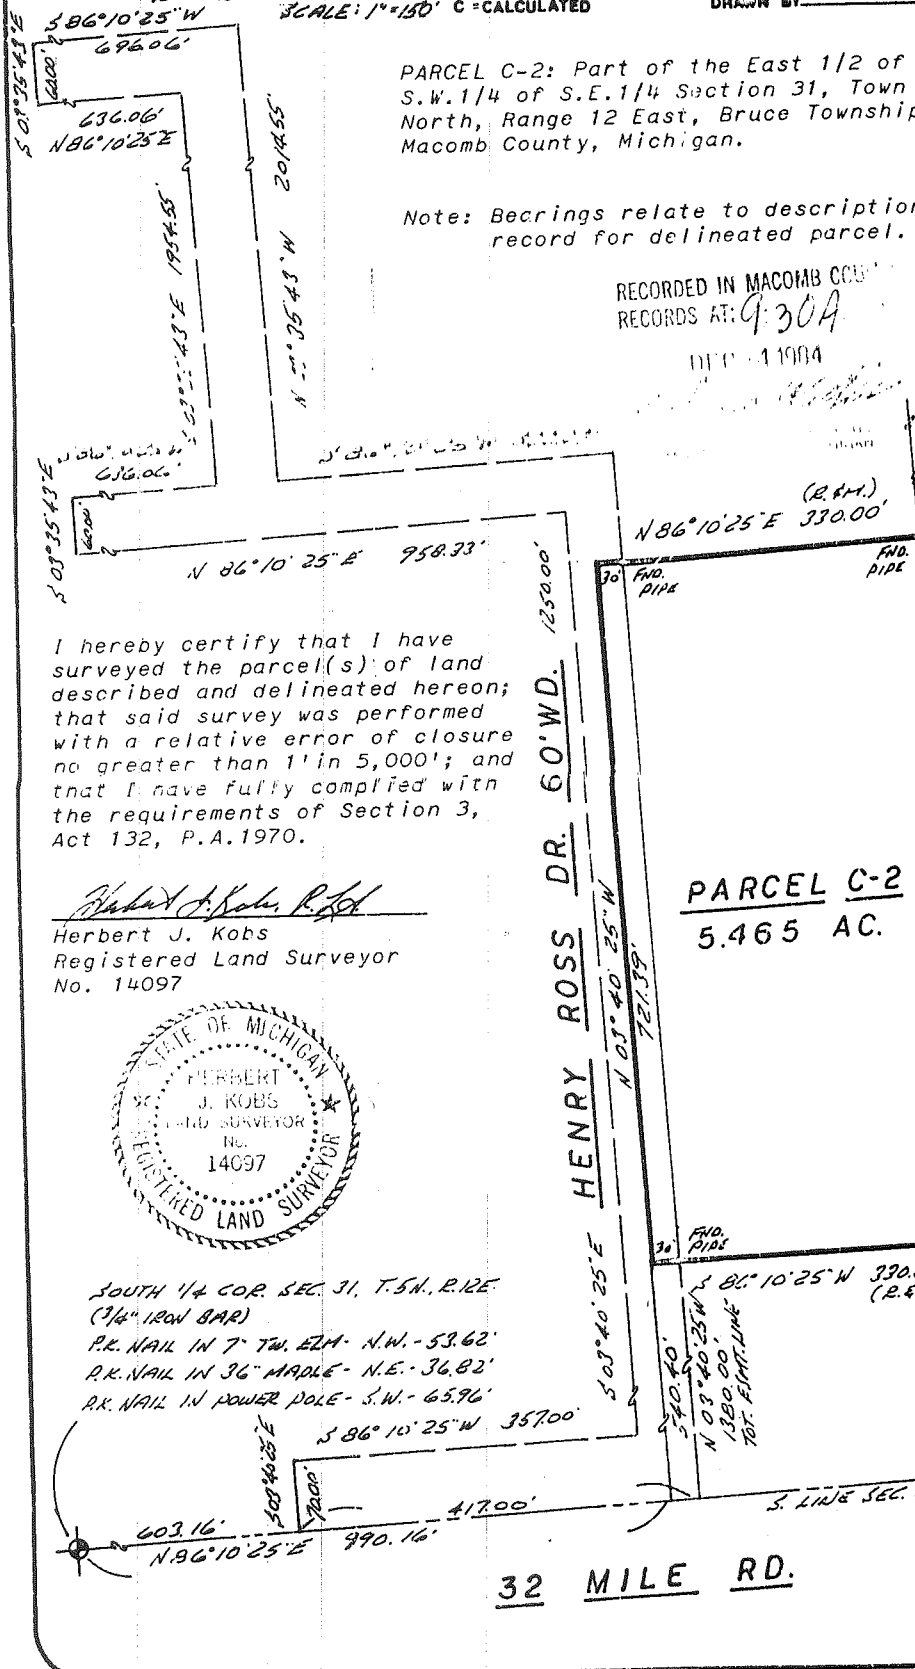 S 86°10'25"W
SCALE: 1"=150' C =CALCULATED
DRAWN BY
696.06'
60.00'
S 03°35'43"E
636.06'
N 86°10'25"E
PARCEL C-2: Part of the East 1/2 of
S.W.1/4 of S.E.1/4 Section 31, Town
North, Range 12 East, Bruce Township
Macomb County, Michigan.
1954.55'
2014.55'
Note: Bearings relate to description
record for delineated parcel.
RECORDED IN MACOMB
RECORDS AT: 9:30A
636.06'
S 03°35'43"E
60.00'
N 86°10'25"E 958.33'
(R.&M.)
N 86°10'25"E 330.00'
30' FND.
PIPE
FND.
PIPE
1250.00'
I hereby certify that I have
surveyed the parcel(s) of land
described and delineated hereon;
that said survey was performed
with a relative error of closure
no greater than 1' in 5,000'; and
that I have fully complied with
the requirements of Section 3,
Act 132, P.A.1970.
Herbert J. Kobs
Registered Land Surveyor
No. 14097
STATE OF MICHIGAN
HERBERT
J. KOBS
LAND SURVEYOR
No.
14097
REGISTERED LAND SURVEYOR
HENRY ROSS DR. 60'WD.
N 03°40'25"W
721.39'
PARCEL C-2
5.465 AC.
S 03°40'25"E
30' FND.
PIPE
S 86°10'25"W 330.
540.40'
N 03°40'25"W
1380.00'
TOT. ESMT. LINE
SOUTH 1/4 COR. SEC. 31, T.5N., R.12E.
(3/4" IRON BAR)
P.K. NAIL IN 7" TW. ELM - N.W. - 53.62'
P.K. NAIL IN 36" MAPLE - N.E. - 36.82'
P.K. NAIL IN POWER POLE - S.W. - 65.96'
S 86°10'25"W 357.00'
S 03°40'25"E
70.00'
603.16'
417.00'
N 86°10'25"E 990.16'
S. LINE SEC.
32 MILE RD.